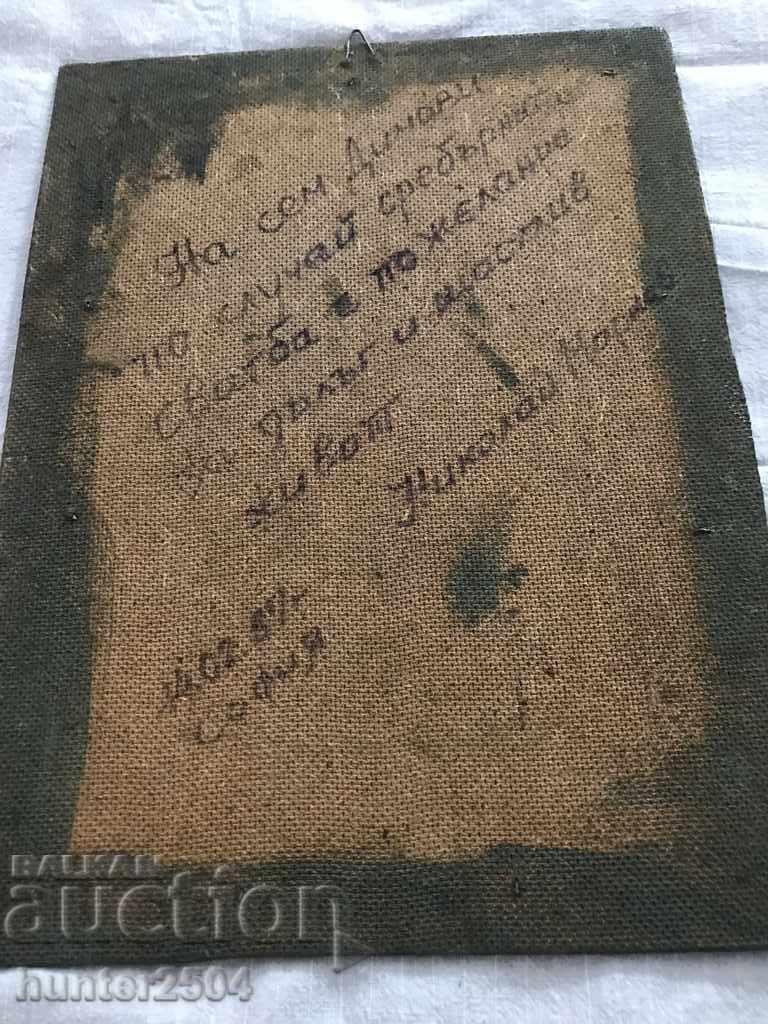 На сем Динави
по случай сребърната
сватба с пожелание
за дълъг и щастлив
живот
Николай
София
BALKAN
auction
hunter2504